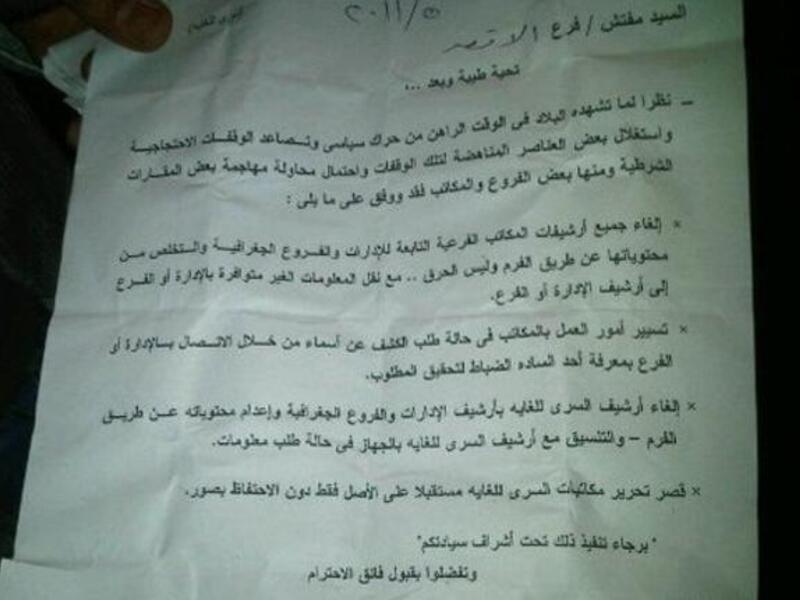 ٢٠١١/٥
السيد مفتش / فرع الاقصر
تحية طيبة وبعد ..،
ـ نظرا لما تشهده البلاد فى الوقت الراهن من حراك سياسى وتصاعد الوقفات الاحتجاجية
واستغلال بعض العناصر المناهضة لتلك الوقفات واحتمال محاولة مهاجمة بعض المقارات
الشرطية ومنها بعض الفروع والمكاتب فقد ووفق على ما يلى :
× إلغاء جميع أرشيفات المكاتب الفرعية التابعة للإدارات والفروع الجغرافية والتخلص من
محتوياتها عن طريق الفرم وليس الحرق .. مع نقل المعلومات الغير متوافرة بالإدارة أو الفرع
إلى أرشيف الإدارة أو الفرع.
× تسيير أمور العمل بالمكاتب فى حالة طلب الكشف عن أسماء من خلال الاتصال بالإدارة أو
الفرع بمعرفة أحد الساده الضباط لتحقيق المطلوب.
× إلغاء أرشيف السرى للغايه بأرشيف الإدارات والفروع الجغرافية وإعدام محتوياته عن طريق
الفرم – والتنسيق مع أرشيف السرى للغايه بالجهاز فى حالة طلب معلومات.
× قصر تحرير مكاتبات السرى للغايه مستقبلا على الأصل فقط دون الاحتفاظ بصور.
"برجاء تنفيذ ذلك تحت أشراف سيادتكم"
وتفضلوا بقبول فائق الاحترام